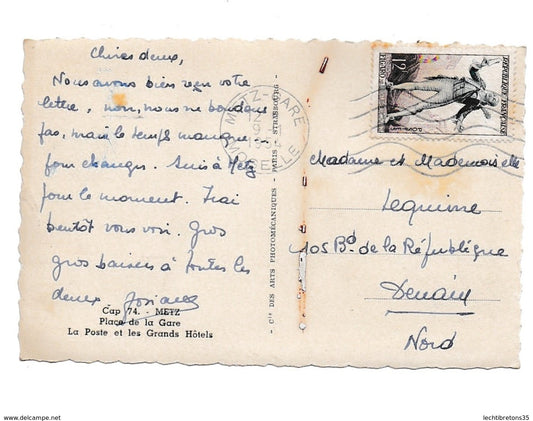 Chères deux,
Nous avons bien reçu votre
lettre, non, nous ne boudons
pas, mais le temps manque
pour changer. Suis à Metz
pour le moment. Irai
bientôt vous voir. Gros
gros baisers à toutes les
deux Josiane
Cap 74. - METZ
Place de la Gare
La Poste et les Grands Hôtels
- Cie DES ARTS PHOTOMÉCANIQUES - PARIS - STRASBOURG -
METZ GARE
MOSELLE
RÉPUBLIQUE FRANÇAISE
12F
POSTES
Madame et Mademoiselle
Lequime
105 Bd de la République
Denain
Nord
www.delcampe.net
lechtibretons35